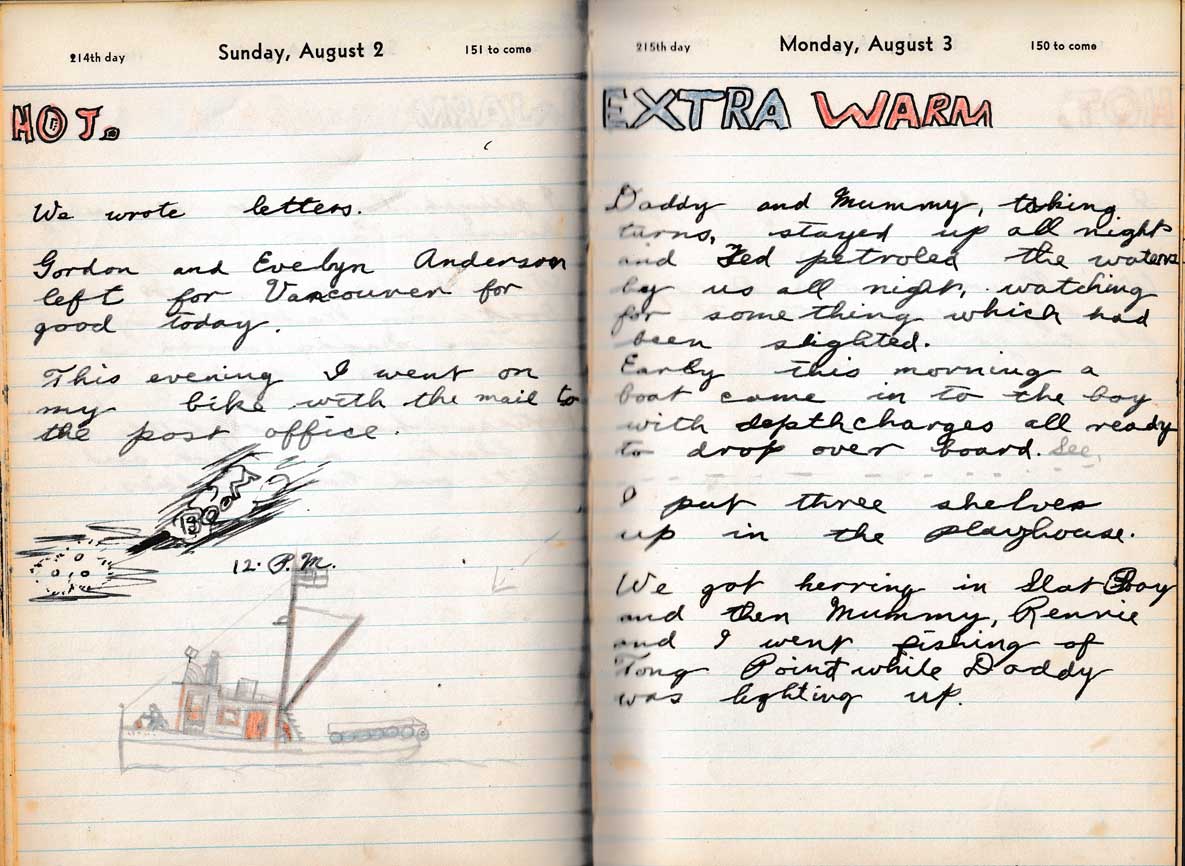 214th day Sunday, August 2 151 to come
HOT.
We wrote letters.
Gordon and Evelyn Anderson
left for Vancouver for
good today.
This evening I went on
my bike with the mail to
the post office.
BOOM
12. P.M.
215th day Monday, August 3 150 to come
EXTRA WARM
Daddy and Mummy, taking
turns, stayed up all night
and Ted petroled the waters
by us all night, watching
for something which had
been slighted.
Early this morning a
boat came in to the bay
with depthcharges all ready
to drop over board. See.
I put three shelves
up in the playhouse.
We got herring in Slat Bay
and then Mummy, Rennie
and I went fishing of
Tong Point while Daddy
was lighting up.